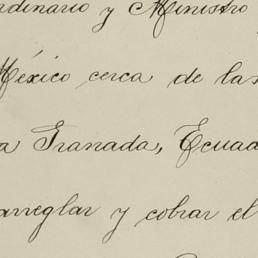 rdinario y Ministro
México cerca de las
a Granada, Ecuad
arreglar y cobrar el